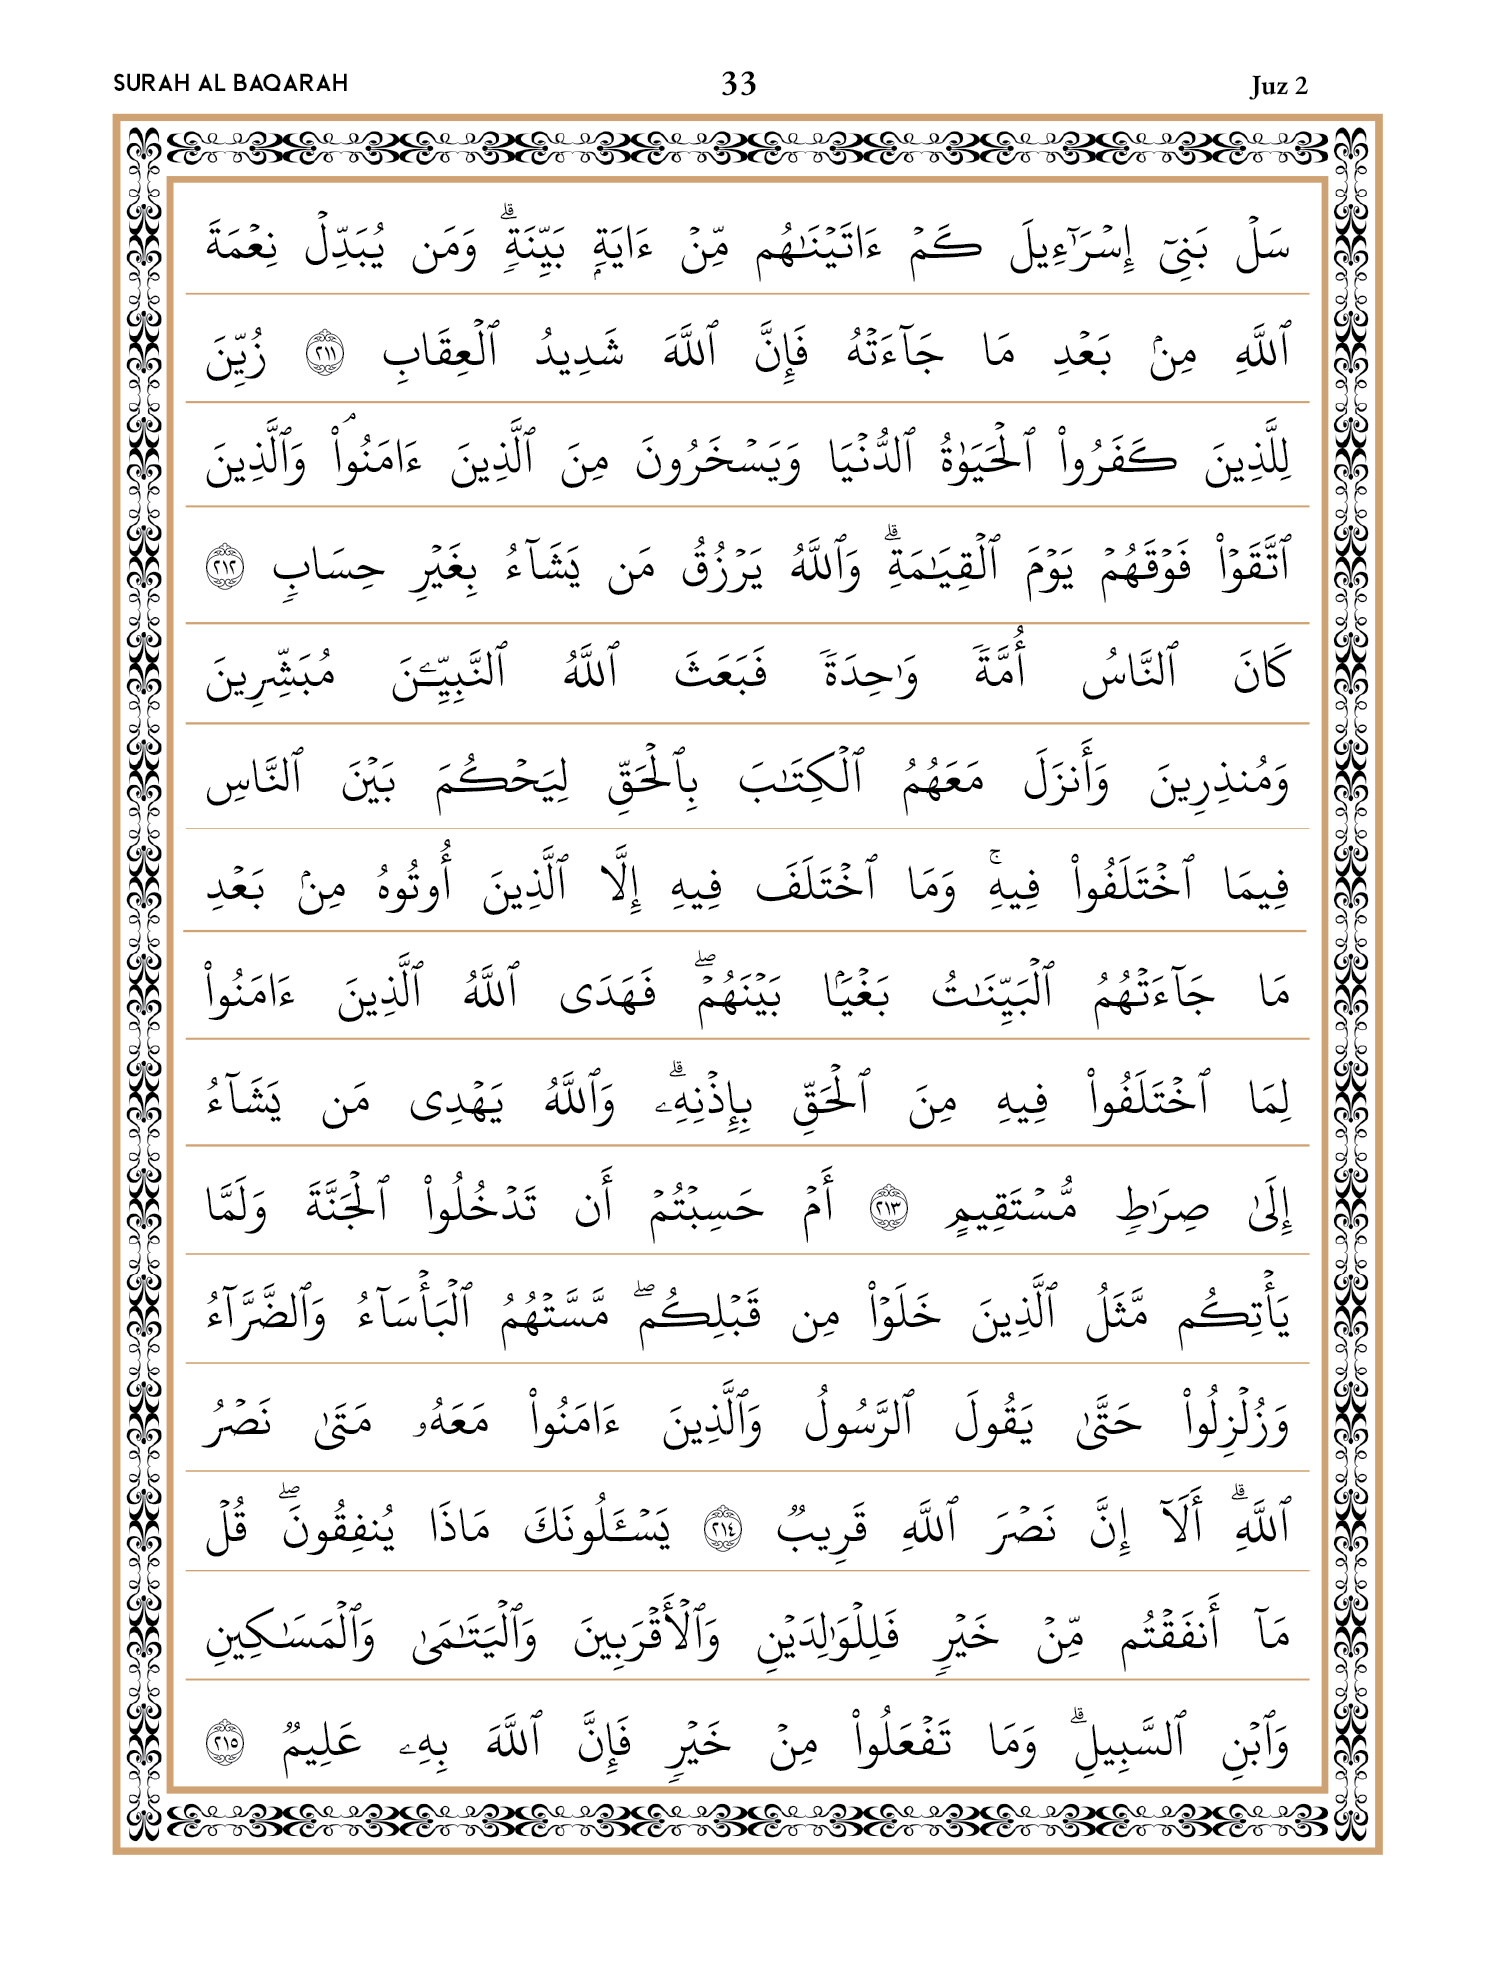 SURAH AL BAQARAH 33 Juz 2
سَلْ بَنِىٓ إِسْرَٰٓءِيلَ كَمْ ءَاتَيْنَـٰهُم مِّنْ ءَايَةٍۭ بَيِّنَةٍۢ ۗ وَمَن يُبَدِّلْ نِعْمَةَ
ٱللَّهِ مِنۢ بَعْدِ مَا جَآءَتْهُ فَإِنَّ ٱللَّهَ شَدِيدُ ٱلْعِقَابِ ٢١١ زُيِّنَ
لِلَّذِينَ كَفَرُوا۟ ٱلْحَيَوٰةُ ٱلدُّنْيَا وَيَسْخَرُونَ مِنَ ٱلَّذِينَ ءَامَنُوا۟ ۘ وَٱلَّذِينَ
ٱتَّقَوْا۟ فَوْقَهُمْ يَوْمَ ٱلْقِيَـٰمَةِ ۗ وَٱللَّهُ يَرْزُقُ مَن يَشَآءُ بِغَيْرِ حِسَابٍۢ ٢١٢
كَانَ ٱلنَّاسُ أُمَّةًۭ وَٰحِدَةًۭ فَبَعَثَ ٱللَّهُ ٱلنَّبِيِّـۧنَ مُبَشِّرِينَ
وَمُنذِرِينَ وَأَنزَلَ مَعَهُمُ ٱلْكِتَـٰبَ بِٱلْحَقِّ لِيَحْكُمَ بَيْنَ ٱلنَّاسِ
فِيمَا ٱخْتَلَفُوا۟ فِيهِ ۚ وَمَا ٱخْتَلَفَ فِيهِ إِلَّا ٱلَّذِينَ أُوتُوهُ مِنۢ بَعْدِ
مَا جَآءَتْهُمُ ٱلْبَيِّنَـٰتُ بَغْيًۢا بَيْنَهُمْ ۖ فَهَدَى ٱللَّهُ ٱلَّذِينَ ءَامَنُوا۟
لِمَا ٱخْتَلَفُوا۟ فِيهِ مِنَ ٱلْحَقِّ بِإِذْنِهِۦ ۗ وَٱللَّهُ يَهْدِى مَن يَشَآءُ
إِلَىٰ صِرَٰطٍۢ مُّسْتَقِيمٍ ٢١٣ أَمْ حَسِبْتُمْ أَن تَدْخُلُوا۟ ٱلْجَنَّةَ وَلَمَّا
يَأْتِكُم مَّثَلُ ٱلَّذِينَ خَلَوْا۟ مِن قَبْلِكُم ۖ مَّسَّتْهُمُ ٱلْبَأْسَآءُ وَٱلضَّرَّآءُ
وَزُلْزِلُوا۟ حَتَّىٰ يَقُولَ ٱلرَّسُولُ وَٱلَّذِينَ ءَامَنُوا۟ مَعَهُۥ مَتَىٰ نَصْرُ
ٱللَّهِ ۗ أَلَآ إِنَّ نَصْرَ ٱللَّهِ قَرِيبٌۭ ٢١٤ يَسْـَٔلُونَكَ مَاذَا يُنفِقُونَ ۖ قُلْ
مَآ أَنفَقْتُم مِّنْ خَيْرٍۢ فَلِلْوَٰلِدَيْنِ وَٱلْأَقْرَبِينَ وَٱلْيَتَـٰمَىٰ وَٱلْمَسَـٰكِينِ
وَٱبْنِ ٱلسَّبِيلِ ۗ وَمَا تَفْعَلُوا۟ مِنْ خَيْرٍۢ فَإِنَّ ٱللَّهَ بِهِۦ عَلِيمٌۭ ٢١٥